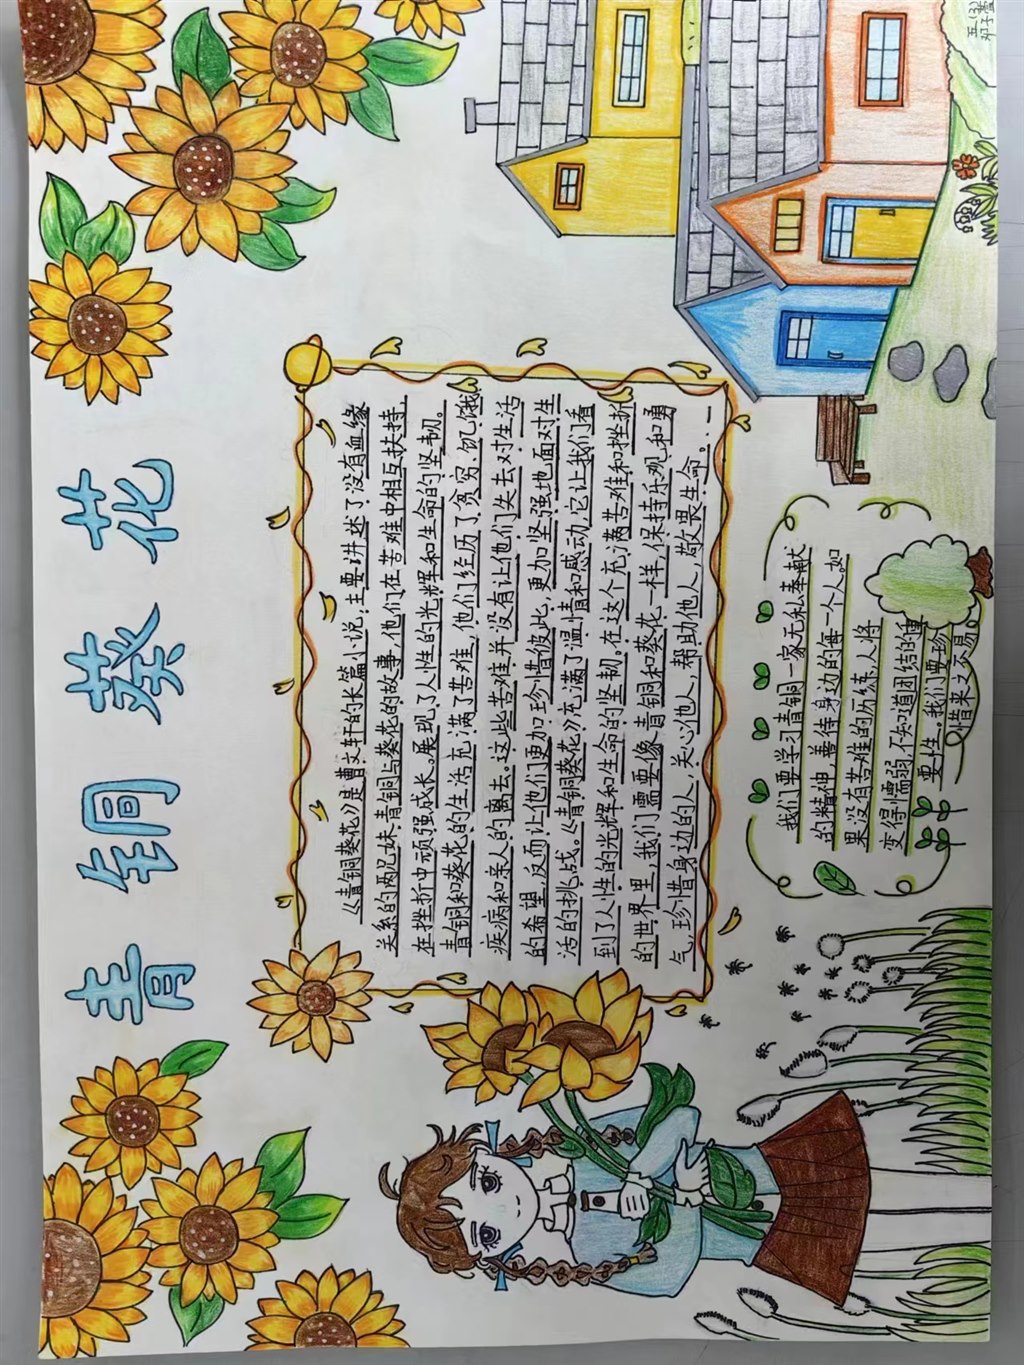 青铜葵花
《青铜葵花》是曹文轩的长篇小说，主要讲述了没有血缘
关系的两兄妹青铜与葵花的故事，他们在苦难中相互扶持，
在挫折中顽强成长。展现了人性的光辉和生命的坚韧。
青铜和葵花的生活充满了苦难，他们经历了贫穷、饥饿
疾病和亲人的离去。这些苦难并没有让他们失去对生活
的希望，反而让他们更加珍惜彼此，更加坚强地面对生
活的挑战。《青铜葵花》充满了温情和感动，它让我们看
到了人性的光辉和生命的坚韧。在这个充满苦难和挫折
的世界里，我们需要像青铜和葵花一样，保持乐观和勇
气，珍惜身边的人，关心他人，帮助他人，敬畏生命。
我们要学习青铜一家无私奉献
的精神，善待身边的每一个人，如
果没有苦难的历练，人将
变得懦弱，不知道团结的重
要性。我们要珍
惜来之不易。